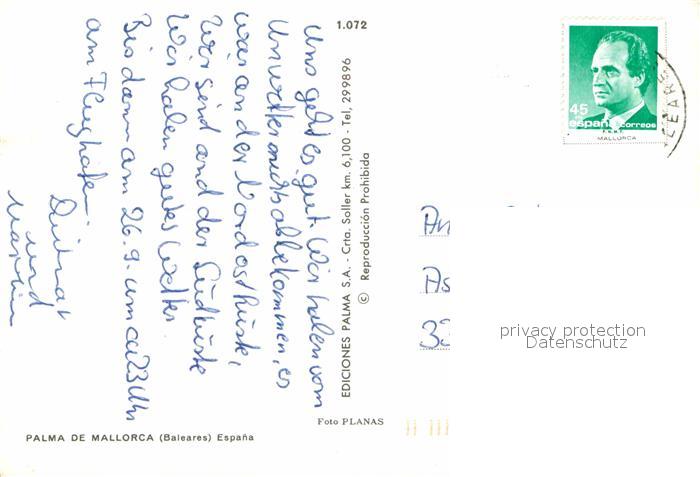 1.072
Uns geht es gut. Wir haben vom
Unwetter nichts abbekommen, es
war an der Nordostküste,
Wir sind and der Südküste
Wir haben gutes Wetter.
Bis dann am 26.9. um ca 23 Uhr
am Flughafen.
und
EDICIONES PALMA S.A. - Crta. Soller km. 6,100 - Tel, 299896
© Reproducción Prohibida
Foto PLANAS
PALMA DE MALLORCA (Baleares) España
45
PTA
españa correos
MALLORCA
LEARES
An
As
33
privacy protection
Datenschutz